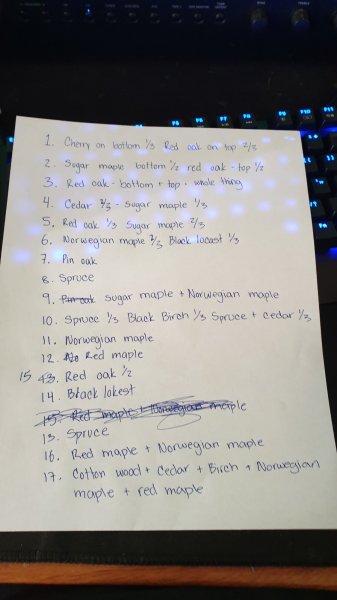 1. Cherry on bottom 1/3 Red oak on top 2/3
2. Sugar maple bottom 1/2 red oak - top 1/2
3. Red oak - bottom + top - whole thing
4. Cedar 2/3 - Sugar maple 1/3
5. Red oak 1/3 Sugar maple 2/3
6. Norwegian maple 2/3 Black locast 1/3
7. Pin oak
8. Spruce
9. Pin oak sugar maple + Norwegian maple
10. Spruce 1/3 Black Birch 1/3 Spruce + Cedar 1/3
11. Norwegian maple
12. Red maple
15 Red oak 1/2
14. Black lokest
15. Red maple + Norwegian maple
13. Spruce
16. Red maple + Norwegian maple
17. Cotton wood + Cedar + Birch + Norwegian
maple + red maple